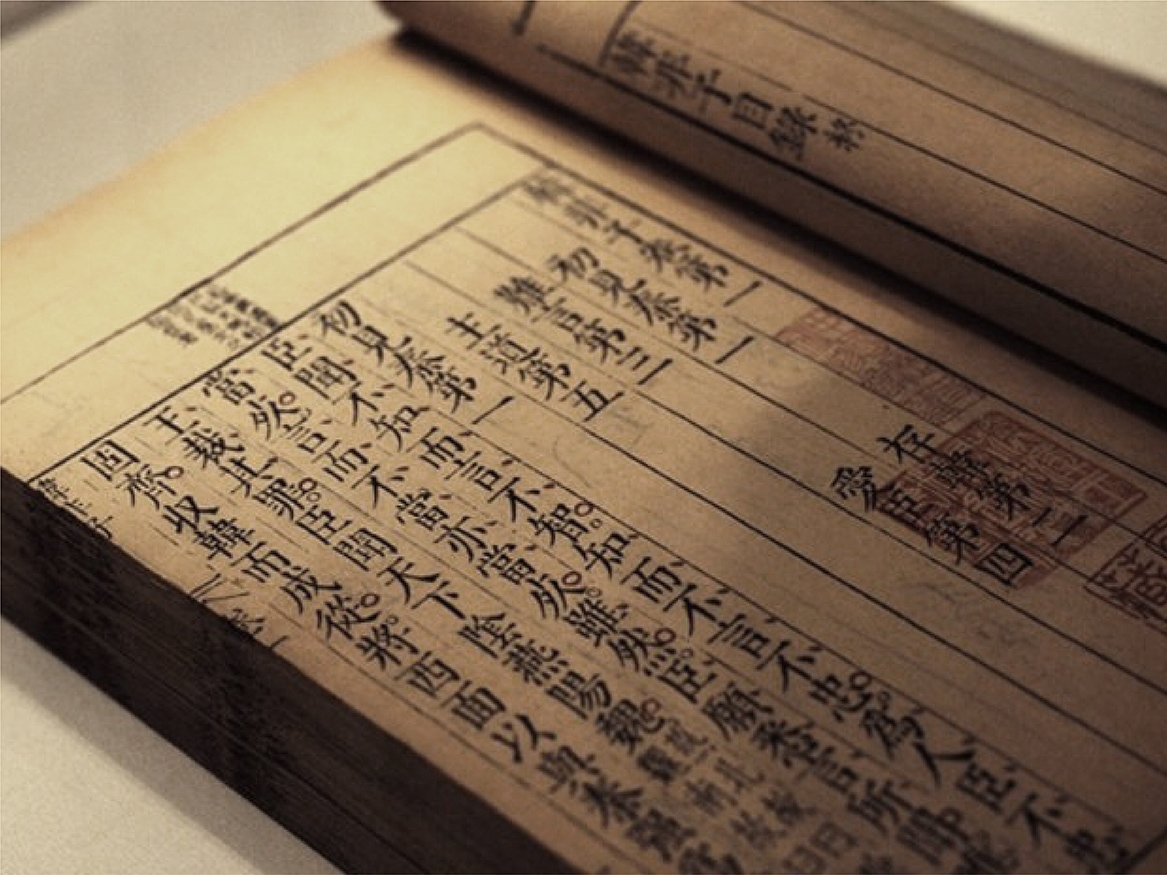 韓非子目錄終
韓非子卷第一
初見秦第一 存韓第二
難言第三 愛臣第四
主道第五
初見秦第一
臣聞、不知而言、不智。知而不言、不忠。爲人臣不忠
當然。言而不當、亦當然。雖然、臣願悉言所聞
王、裁其罪。臣聞天下陰燕陽魏。
固齊。收韓而成從。將西面以與秦強